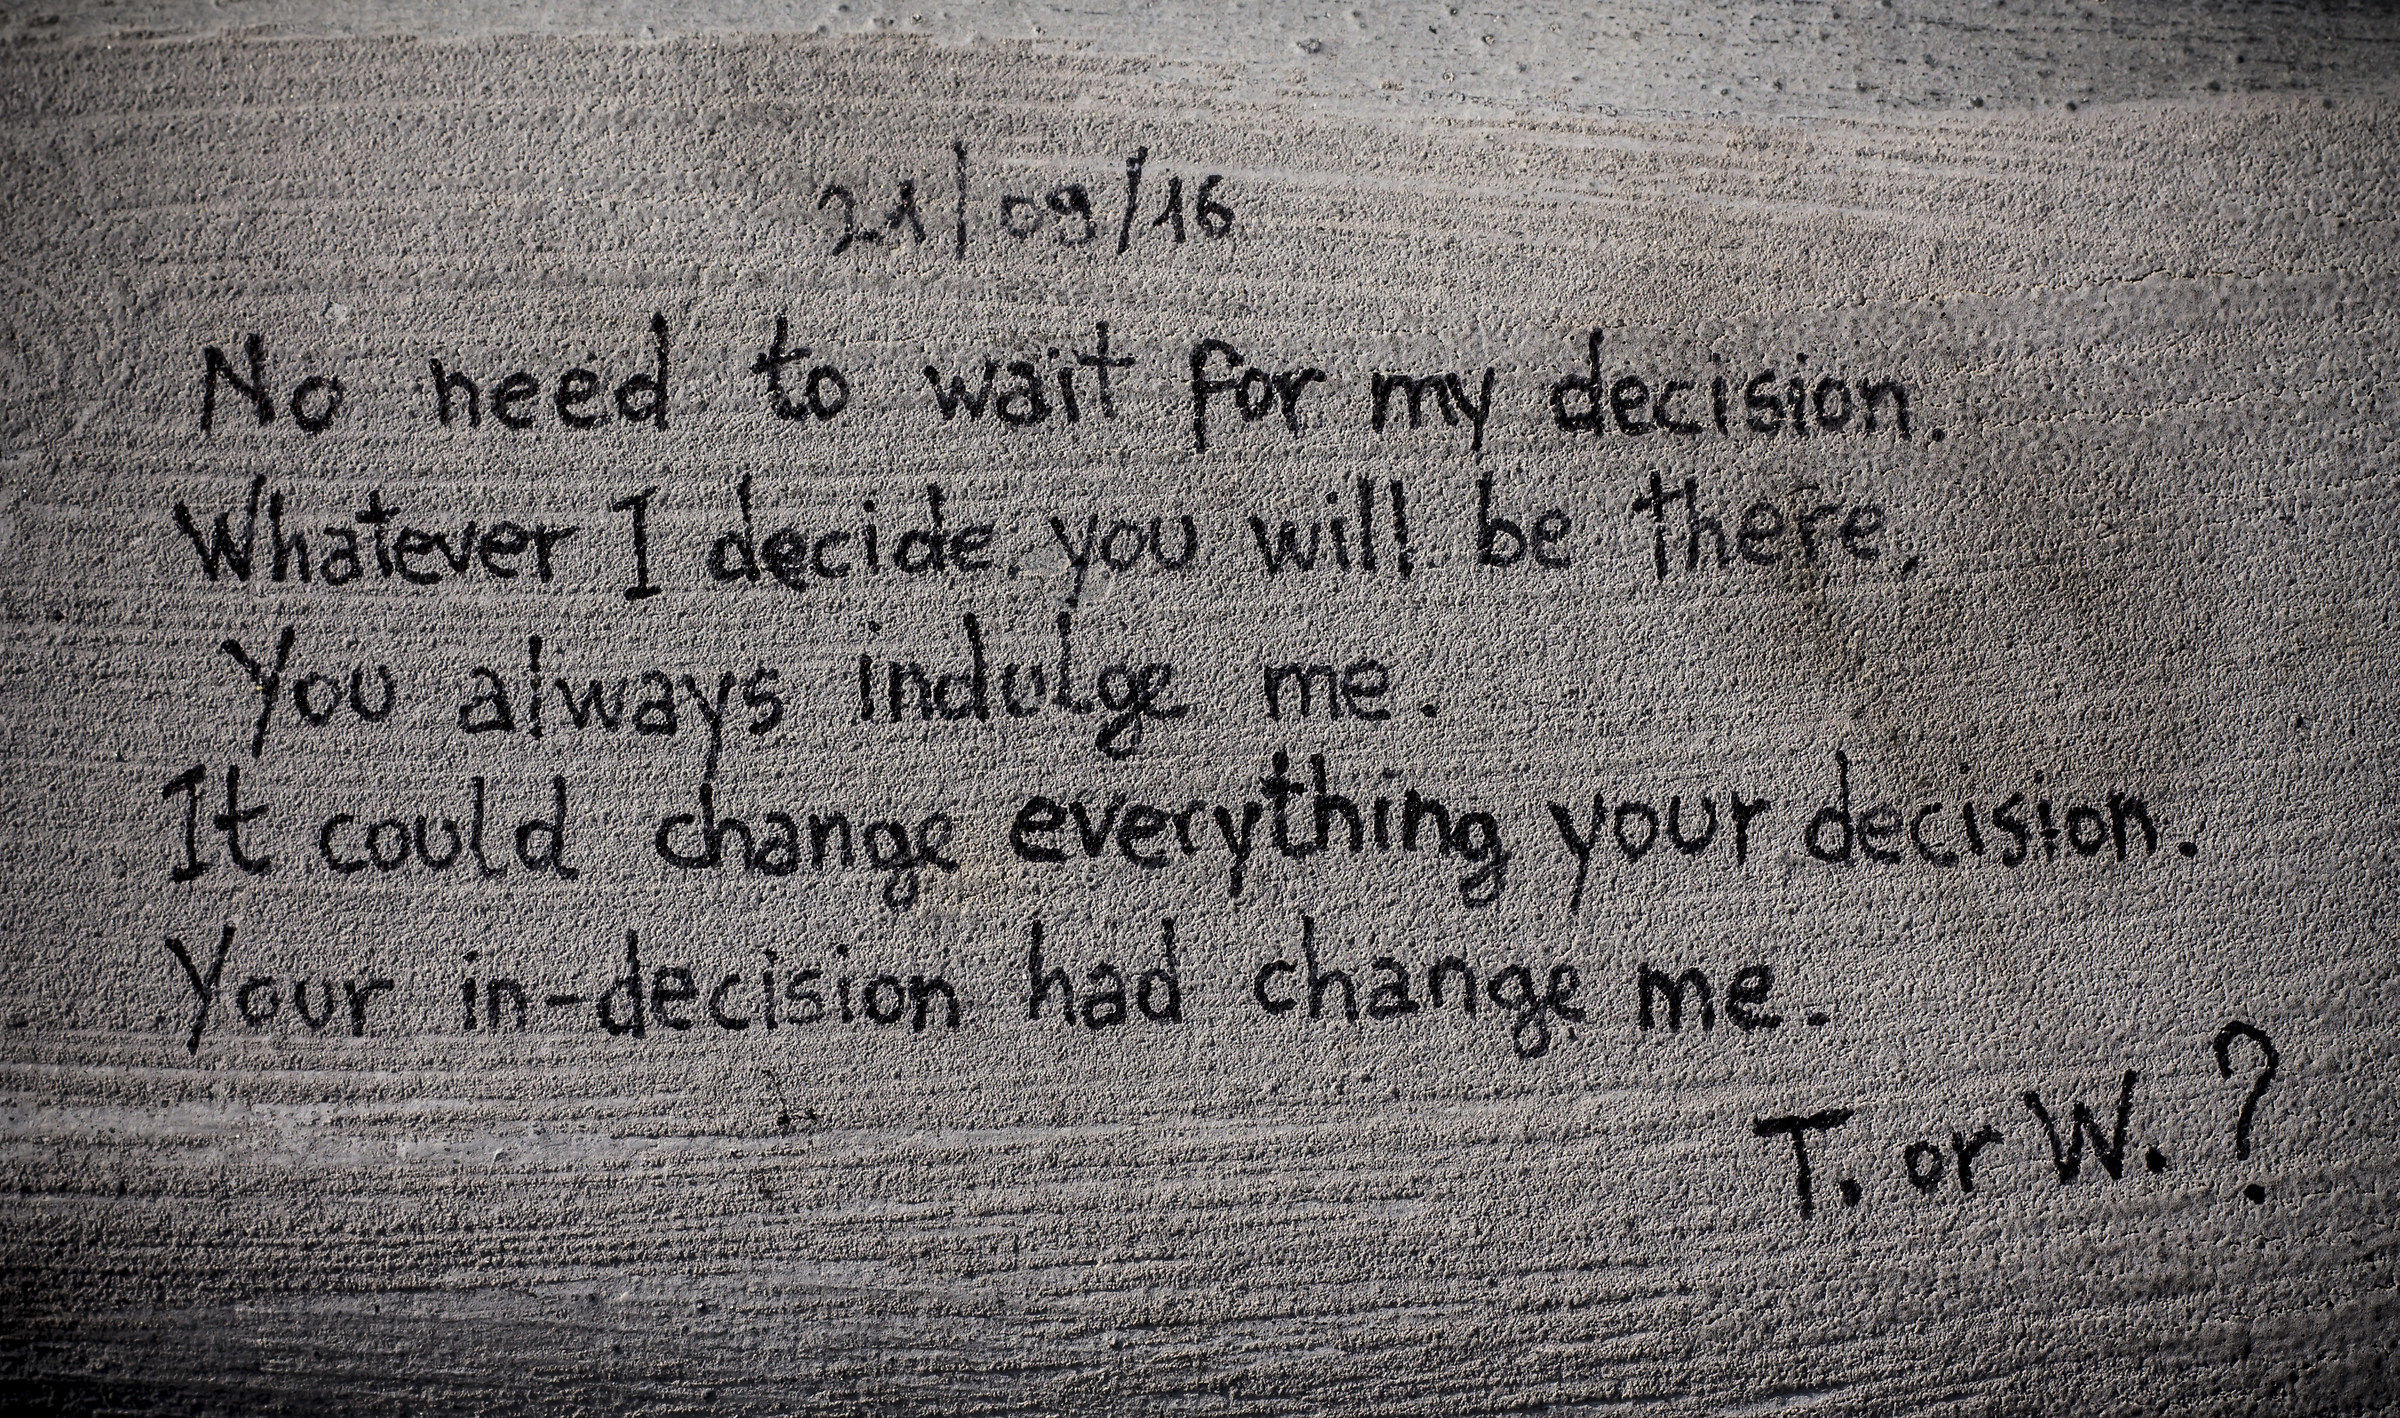 21/09/16
No need to wait for my decision.
Whatever I decide you will be there,
You always indulge me.
It could change everything your decision.
Your in-decision had change me.
T. or W. ?